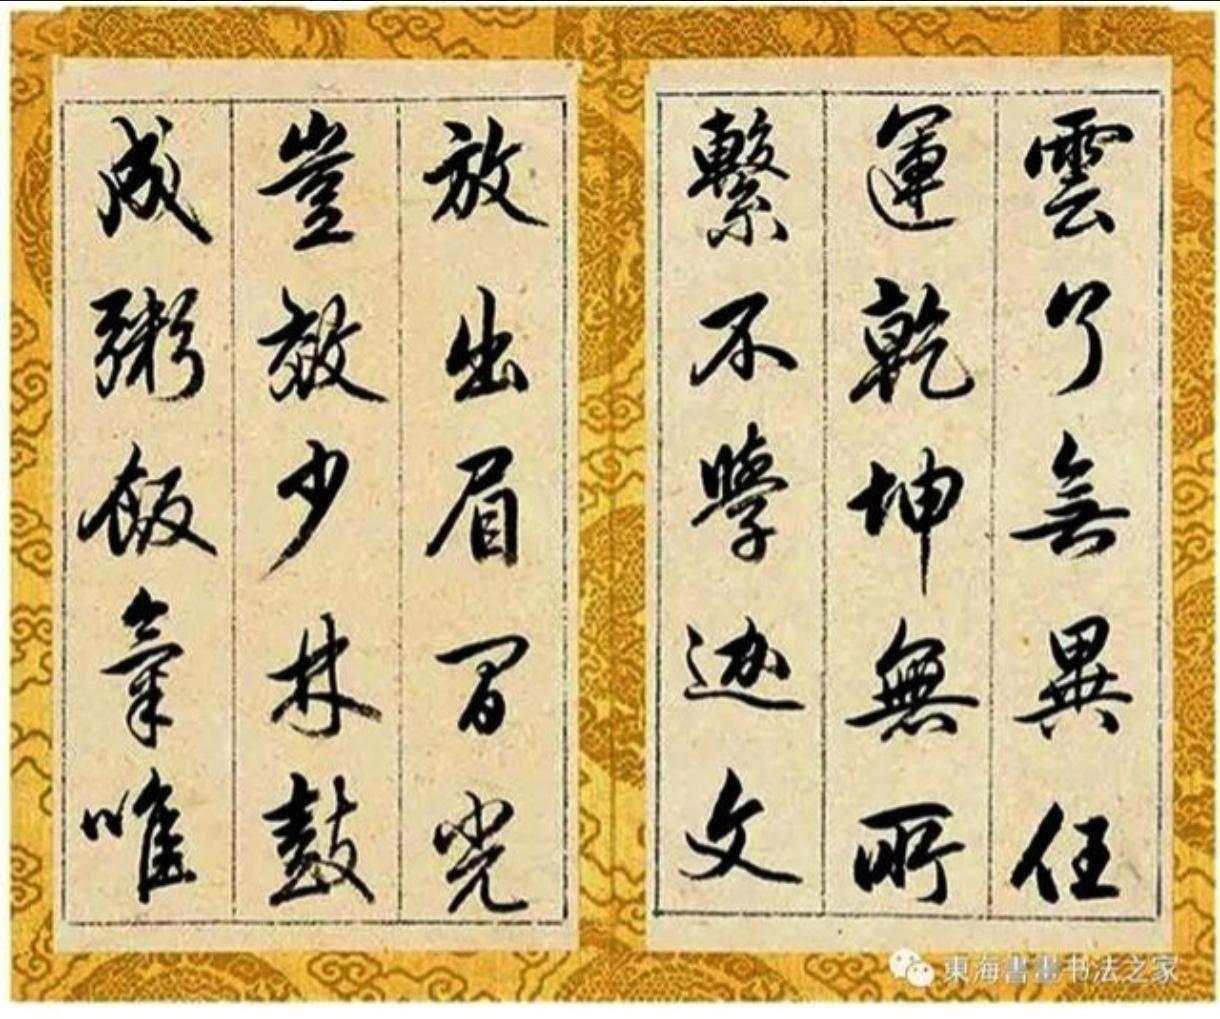 雲了無異任
運乾坤無所
繫不學迦文
放出眉間光
豈效少林鼓
成粥飯氣唯
東海書畫书法之家